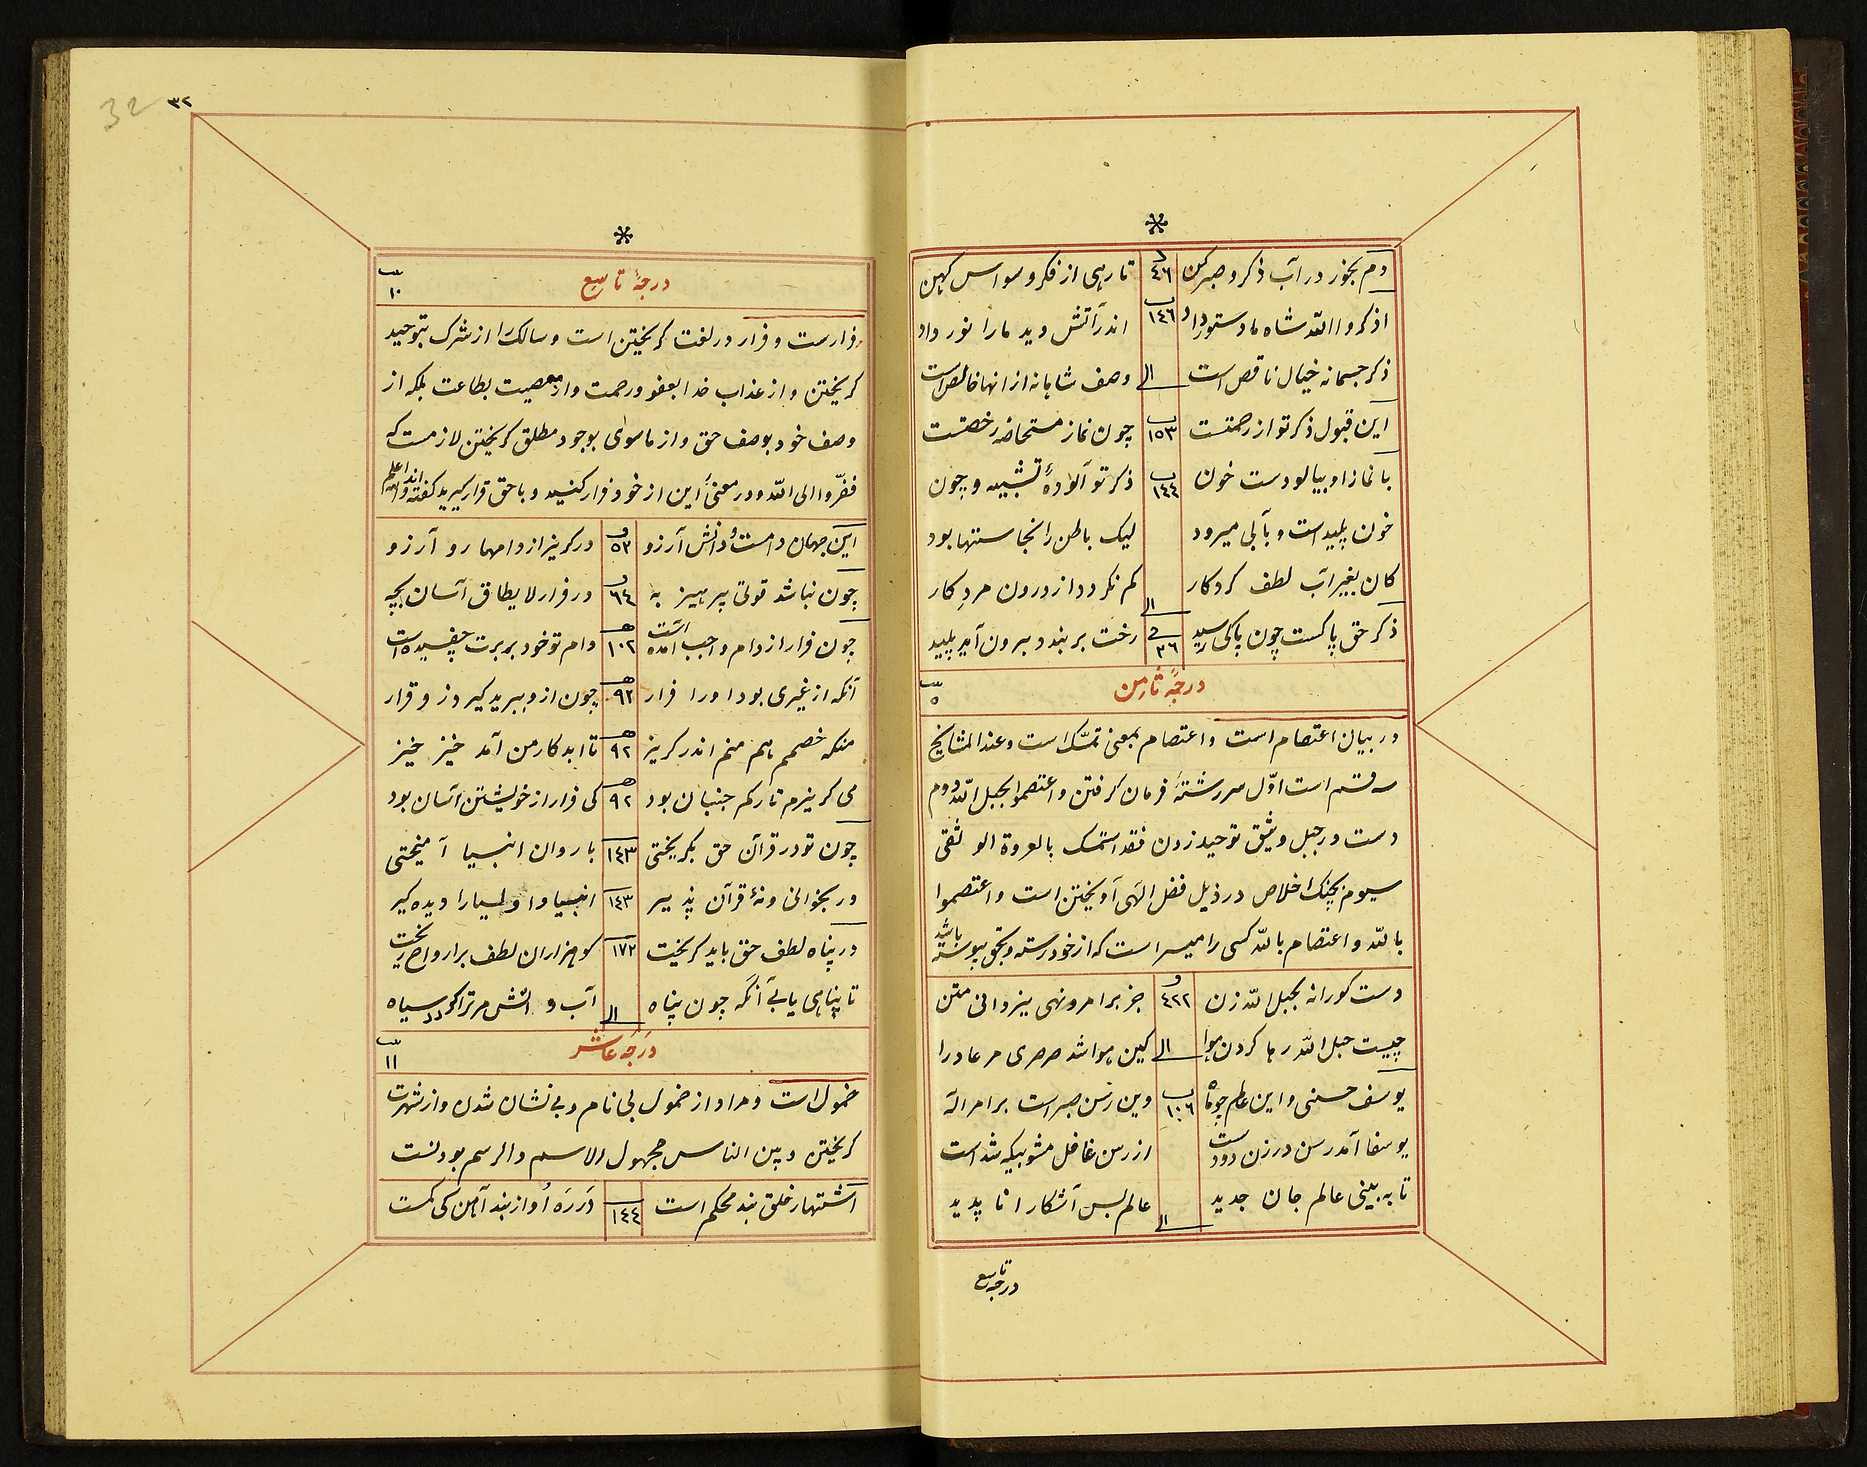 دم بخور در آب ذکر و صبر کن ٤٦ تا رهی از فکر و وسواس کهن
اذکروا الله شاه ما دستور داد ١٤٦ اندر آتش دید ما را نور داد
ذکر جسمانه خیال ناقص است الی وصف شاهانه از انها خالص است
این قبول ذکر تو از رحمتست ١٥٣ چون نماز مستحاضه رخصتست
با نماز او بیالودست خون ١٤٤ ذکر تو آلوده تشبیه و چون
خون پلیداست و بآبی میرود لیک باطن را نجاستها بود
کان بغیر آب لطف کردکار الی کم نکردد از درون مرد کار
ذکر حق پاکست چون پاکی رسید ٣٦ رخت بربندد برون آمد پلید
درجهٔ ثامن
٥
در بیان اعتصام است و اعتصام بمعنی تمسّک است و عند المشایخ
سه قسم است اوّل سررشتهٔ فرمان کرفتن واعتصموا بحبل الله دوم
دست در حبل وثیق توحید زدن فقد استمسک بالعروة الوثقی
سیوم بچنک اخلاص در ذیل فضل الهی آویختن است و اعتصموا
بالله و اعتصام بالله کسی را میسر است که از خود رسته و بحق پیوسته باشد
دست کورانه بحبل الله زن ٤٢٢ جز بر امر و نهی یزدانی متن
چیست حبل الله رها کردن هوا الی کین هوا شد صرصری مر عاد را
یوسف حسنی و این عالم چو چاه ١٠٦ وین رسن صبر است بر امر اله
یوسفا آمد رسن در زن دو دست از رسن غافل مشو بیکه شد است
تا به بینی عالم جان جدید الی عالم بس آشکارا ناپدید
درجه تاسع
٣٢
32
درجهٔ تاسع
١٠
فرارست و فرار در لغت کریختن است و سالک را از شرک بتوحید
کریختن و از عذاب خدا بعفو و رحمت و از معصیت بطاعت بلکه از
وصف خود بوصف حق و از ماسوی بوجود مطلق کریختن لازمست که
ففرّوا الی الله و در معنی این از خود فرار کنید و با حق قرار کیرید کفته‌اند والله اعلم
این جهان دامست و دانش آرزو ٥٣ در کریز از دامها رو آر زو
چون نباشد قوتی پرهیز به ٦٤ در فرار لا یطاق آسان بجه
چون فرار از دام واجب آمده است ١٠٢ دام تو خود بر برت چفسیده است
آنکه از غیری بود او را فرار ٩٢ چون از و ببرید کیرد ز و قرار
منکه خصمم هم منم اندر کریز ٩٢ تا ابد کار من آمد خیز خیز
می کریزم تا رکم جنبان بود ٩٢ کی فرار از خویشتن آسان بود
چون تو در قرآن حق بکریختی ١٤٣ با روان انبیا آمیختی
ور بخوانی و نهٔ قرآن پذیر ١٤٣ انبیا و اولیا را دیده کیر
در پناه لطف حق باید کریخت ١٧٢ کو هزاران لطف بر ارواح ریخت
تا پناهی یابی آنکه چون پناه الی آب و اتش مر ترا کردد سپاه
درجه عاشر
١١
خمول است و مراد از خمول بی نام و بی نشان شدن و از شهرت
کریختن و بین الناس مجهول الاسم والرسم بودنست
اشتهار خلق بند محکم است ١٤٤ در ره او از بند آهن کی کمست